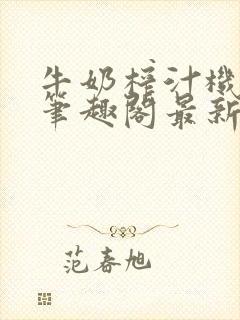 牛奶榨汁機
筆趣閣最新
范春旭